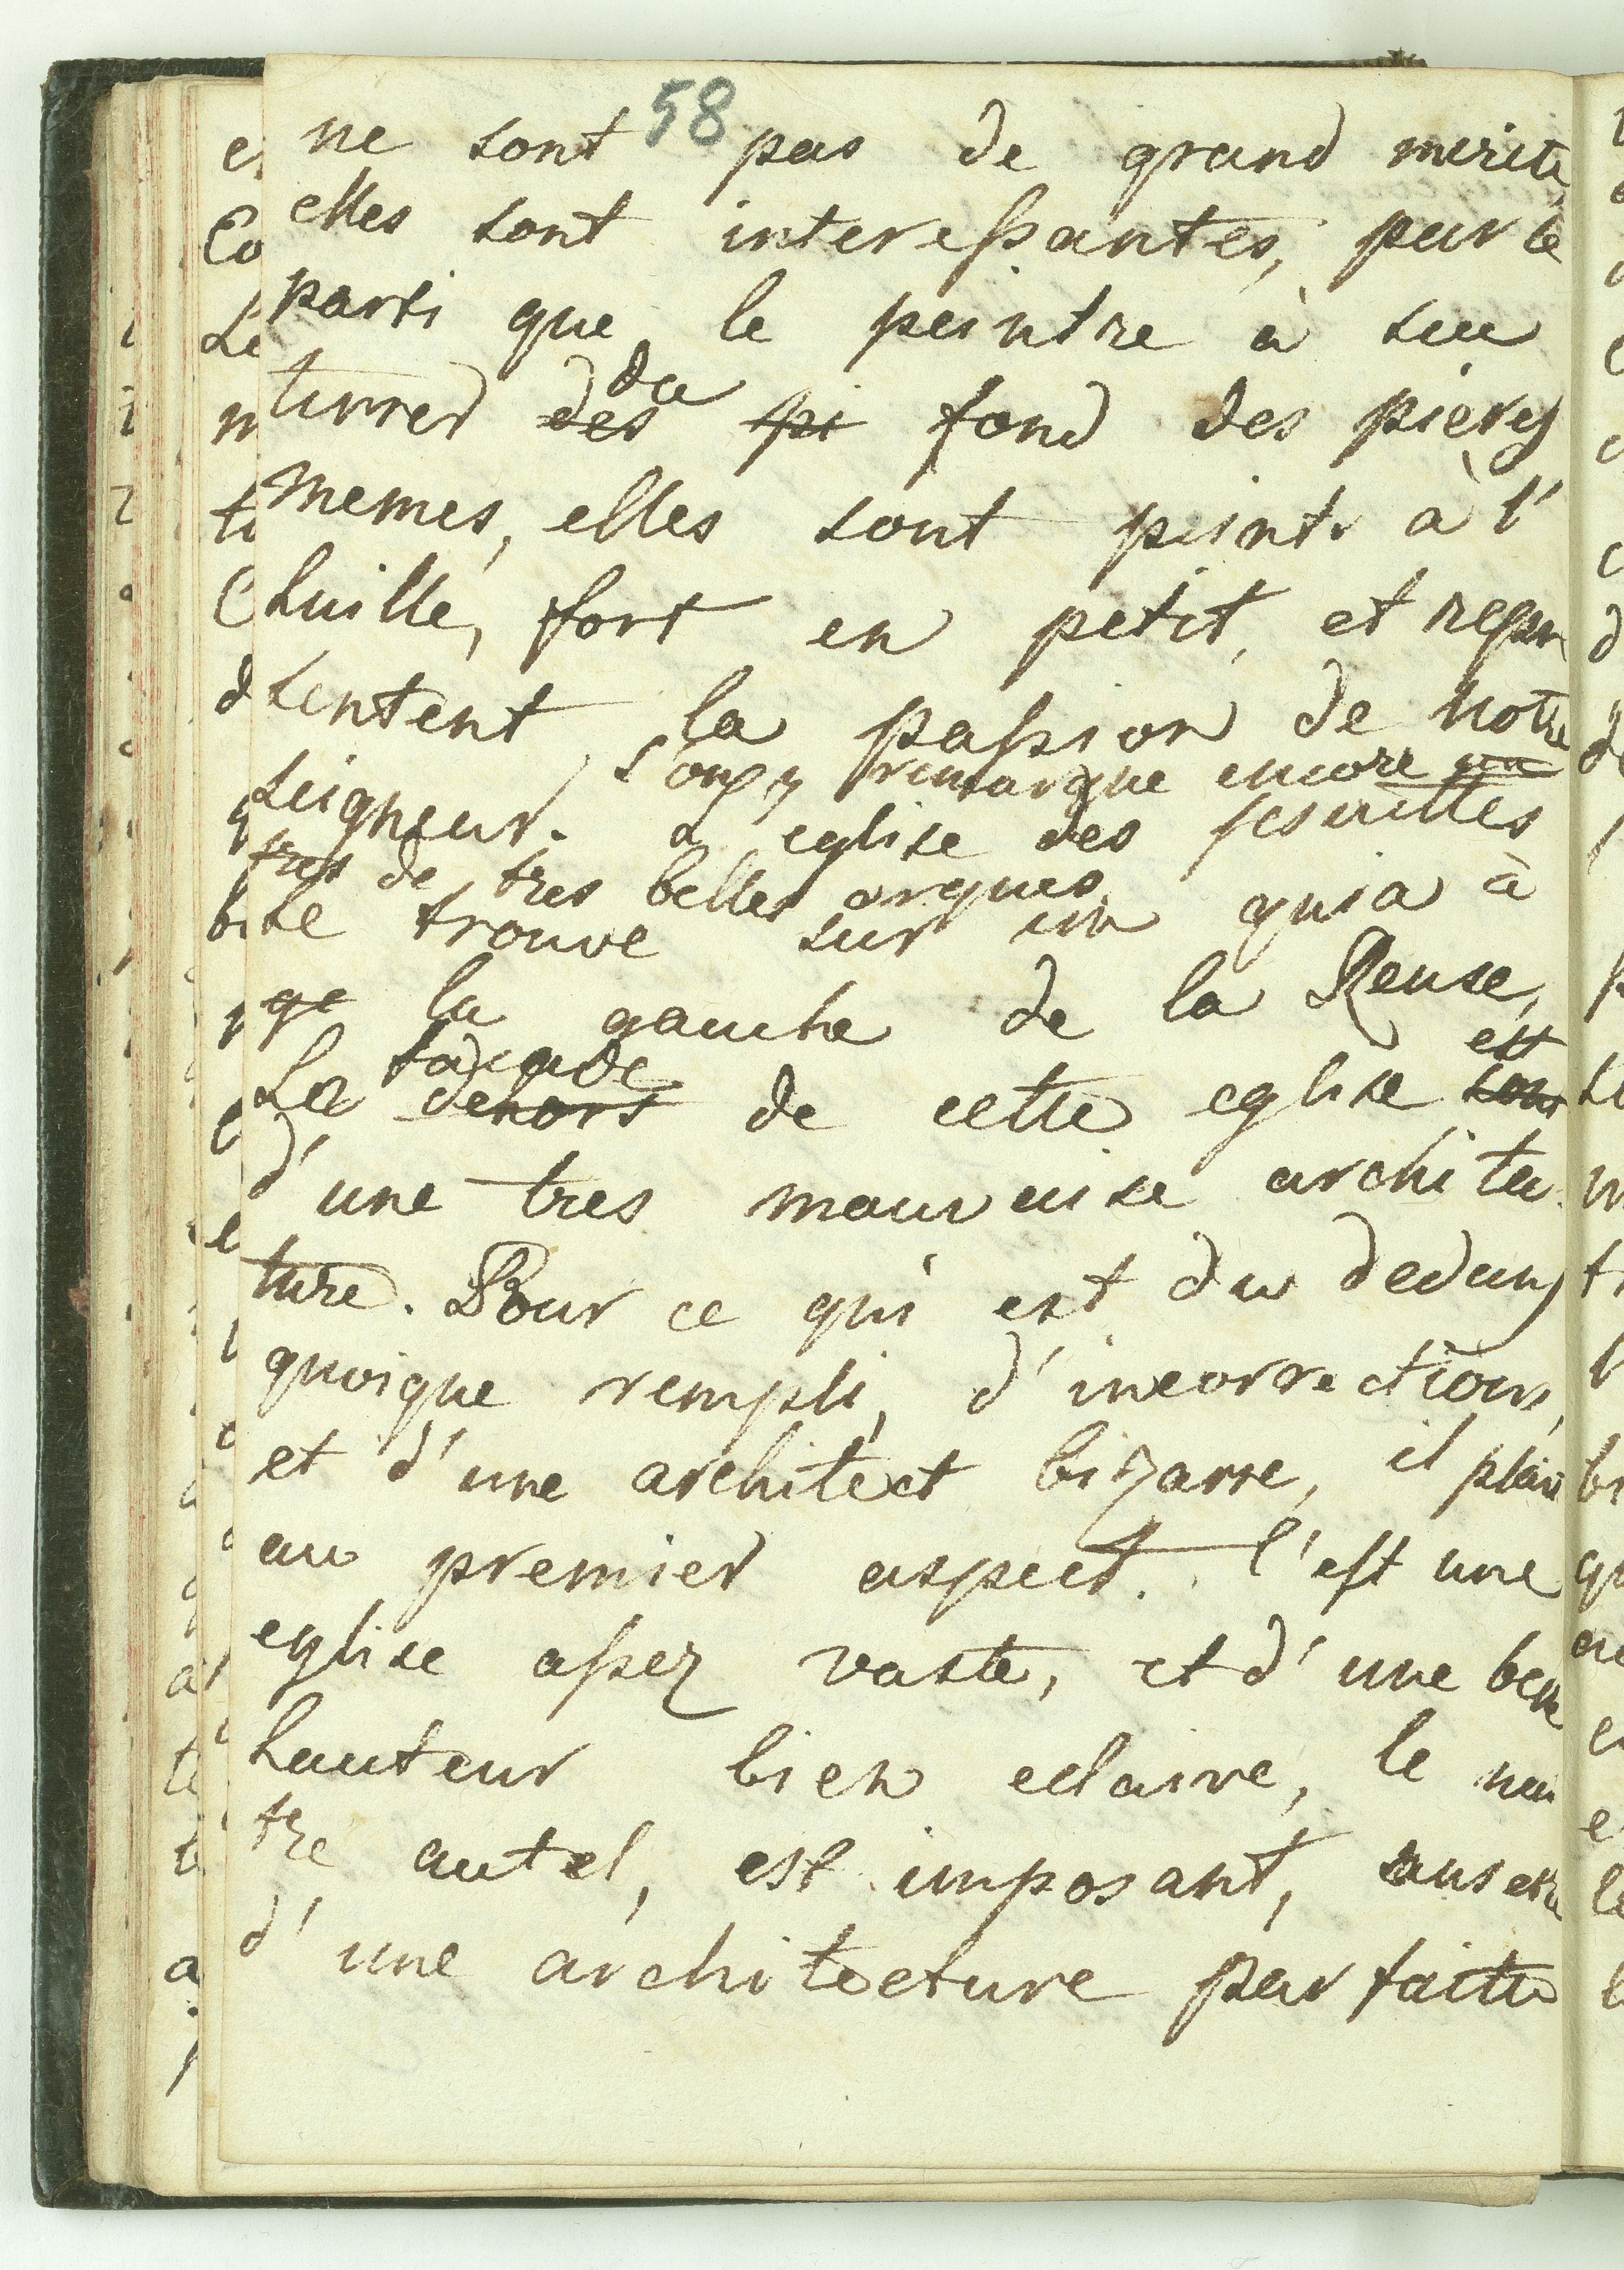 58
ne sont pas de grand merite
elles sont interessantes, par le
parti que le peintre à sçu
tirrer des du pi fond des pieres
memes, elles sont peint. à l'
huille, fort en petit, et repre
sentent la passion de notre
l'on y remarque encore un
seigneur. L'eglise des jesuittes
tres de tres belles orgues
se trouve sur un quia à
ge la gauche de la Reuse,
façade est
La dehors de cette eglise
d'une tres mauvaise architec
ture. Pour ce qui est du dedans
quoique rempli, d'incorrections,
et d'une architect bizarre, il plait
au premier aspect. C'est une
eglise assez vaste, et d'une belle
hauteur bien eclaire, le mai
tre autel, est imposant, sans etre
d'une architecture parfaitte